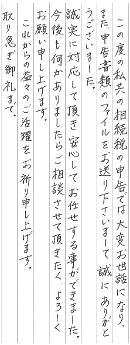 この度の私共の相続税の申告では大変お世話になり、
また申告書類のファイルをお送り下さいまして誠にありがと
うございました。
誠実に対応して頂き安心してお任せする事ができました。
今後も何かありましたらご相談させて頂きたく、よろしく
お願い申し上げます。
これからの益々のご活躍をお祈り申し上げます。
取り急ぎ御礼まで。